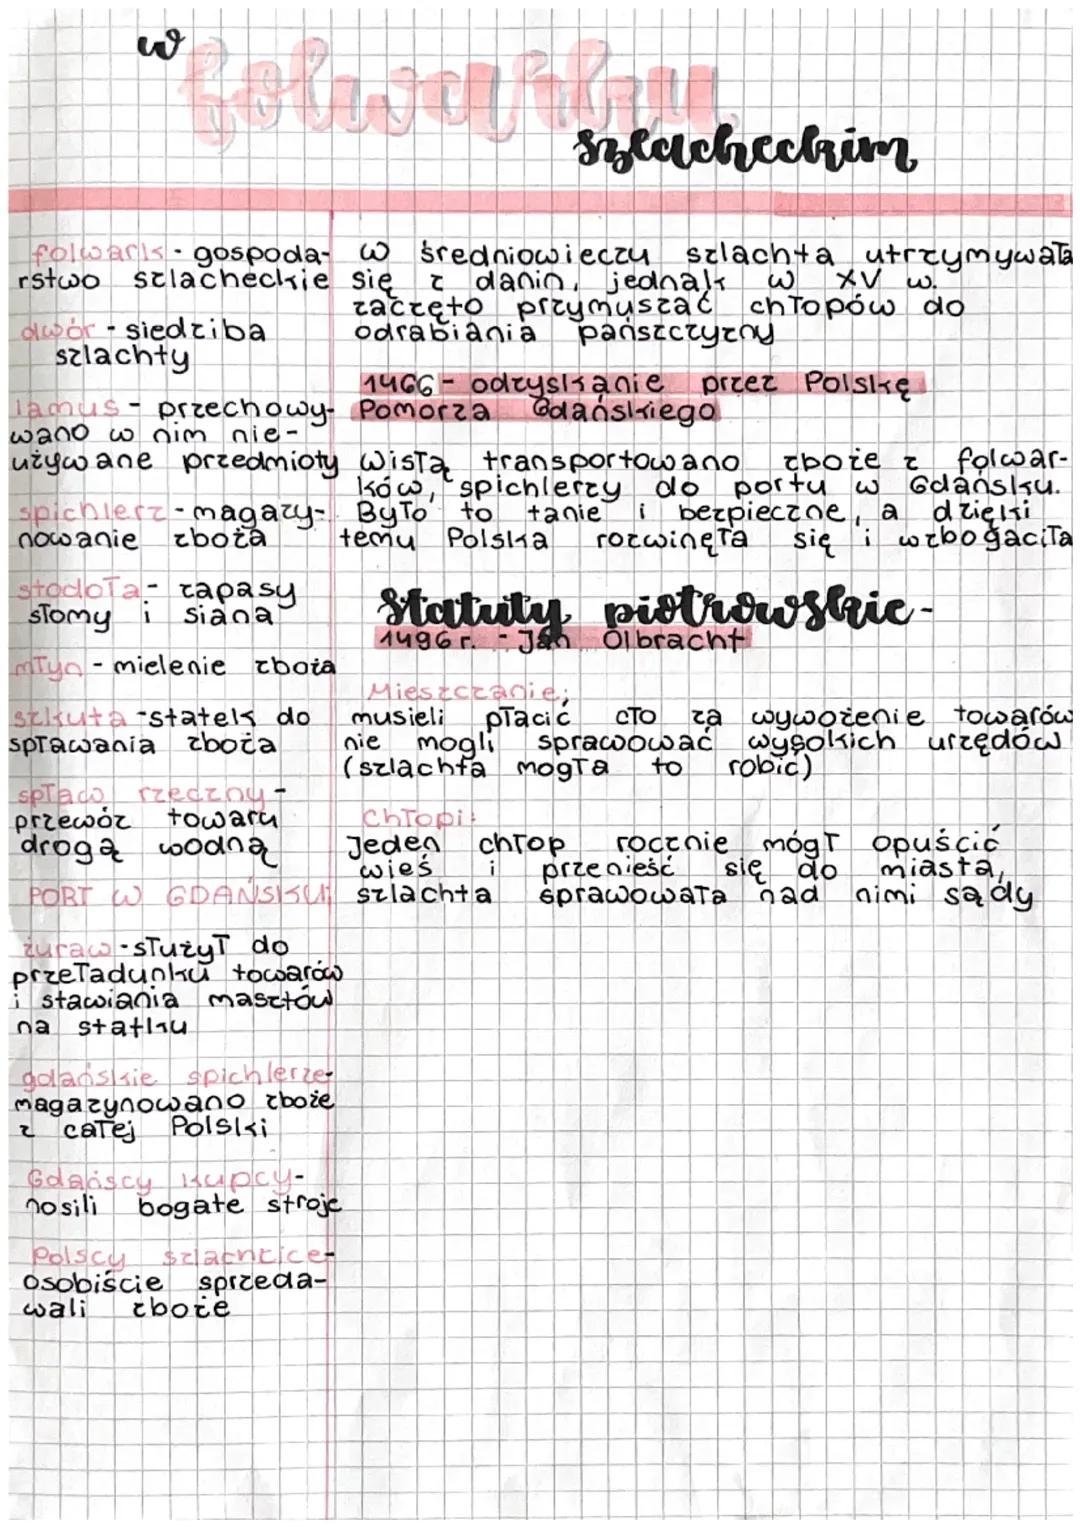 w folwarku
szlacheckim
folwark - gospoda-
rstwo szlacheckie
dwór - siedziba
szlachty
lamus - przechowy-
wano w nim nie-
używane przedmioty
spichlerz - magazy-
nowanie zboża
stodoła - zapasy
słomy i siana
młyn - mielenie zboża
szkuta - statek do
spławania zboża
spław rzeczny -
przewóz towaru
drogą wodną
PORT W GDAŃSKU:
żuraw - służył do
przeładunku towarów
i stawiania masztów
na statku
gdańskie spichlerze-
magazynowano zboże
z całej Polski
Gdańscy kupcy-
nosili bogate stroje
Polscy szlachcice-
osobiście sprzeda-
wali zboże
w średniowieczu szlachta utrzymywała
się z danin, jednak w XV w.
zaczęto przymuszać chłopów do
odrabiania pańszczyzny
1466 - odzyskanie przez Polskę
Pomorza Gdańskiego
Wisłą transportowano zboże z folwar-
ków, spichlerzy do portu w Gdańsku.
Było to tanie i bezpieczne, a dzięki
temu Polska rozwinęła się i wzbogaciła
Statuty piotrowskie -
1496 r. - Jan Olbracht
Mieszczanie:
musieli płacić cło za wywożenie towarów
nie mogli sprawować wysokich urzędów
(szlachta mogła to robić)
Chłopi:
Jeden chłop rocznie mógł opuścić
wieś i przenieść się do miasta,
szlachta sprawowała nad nimi sądy